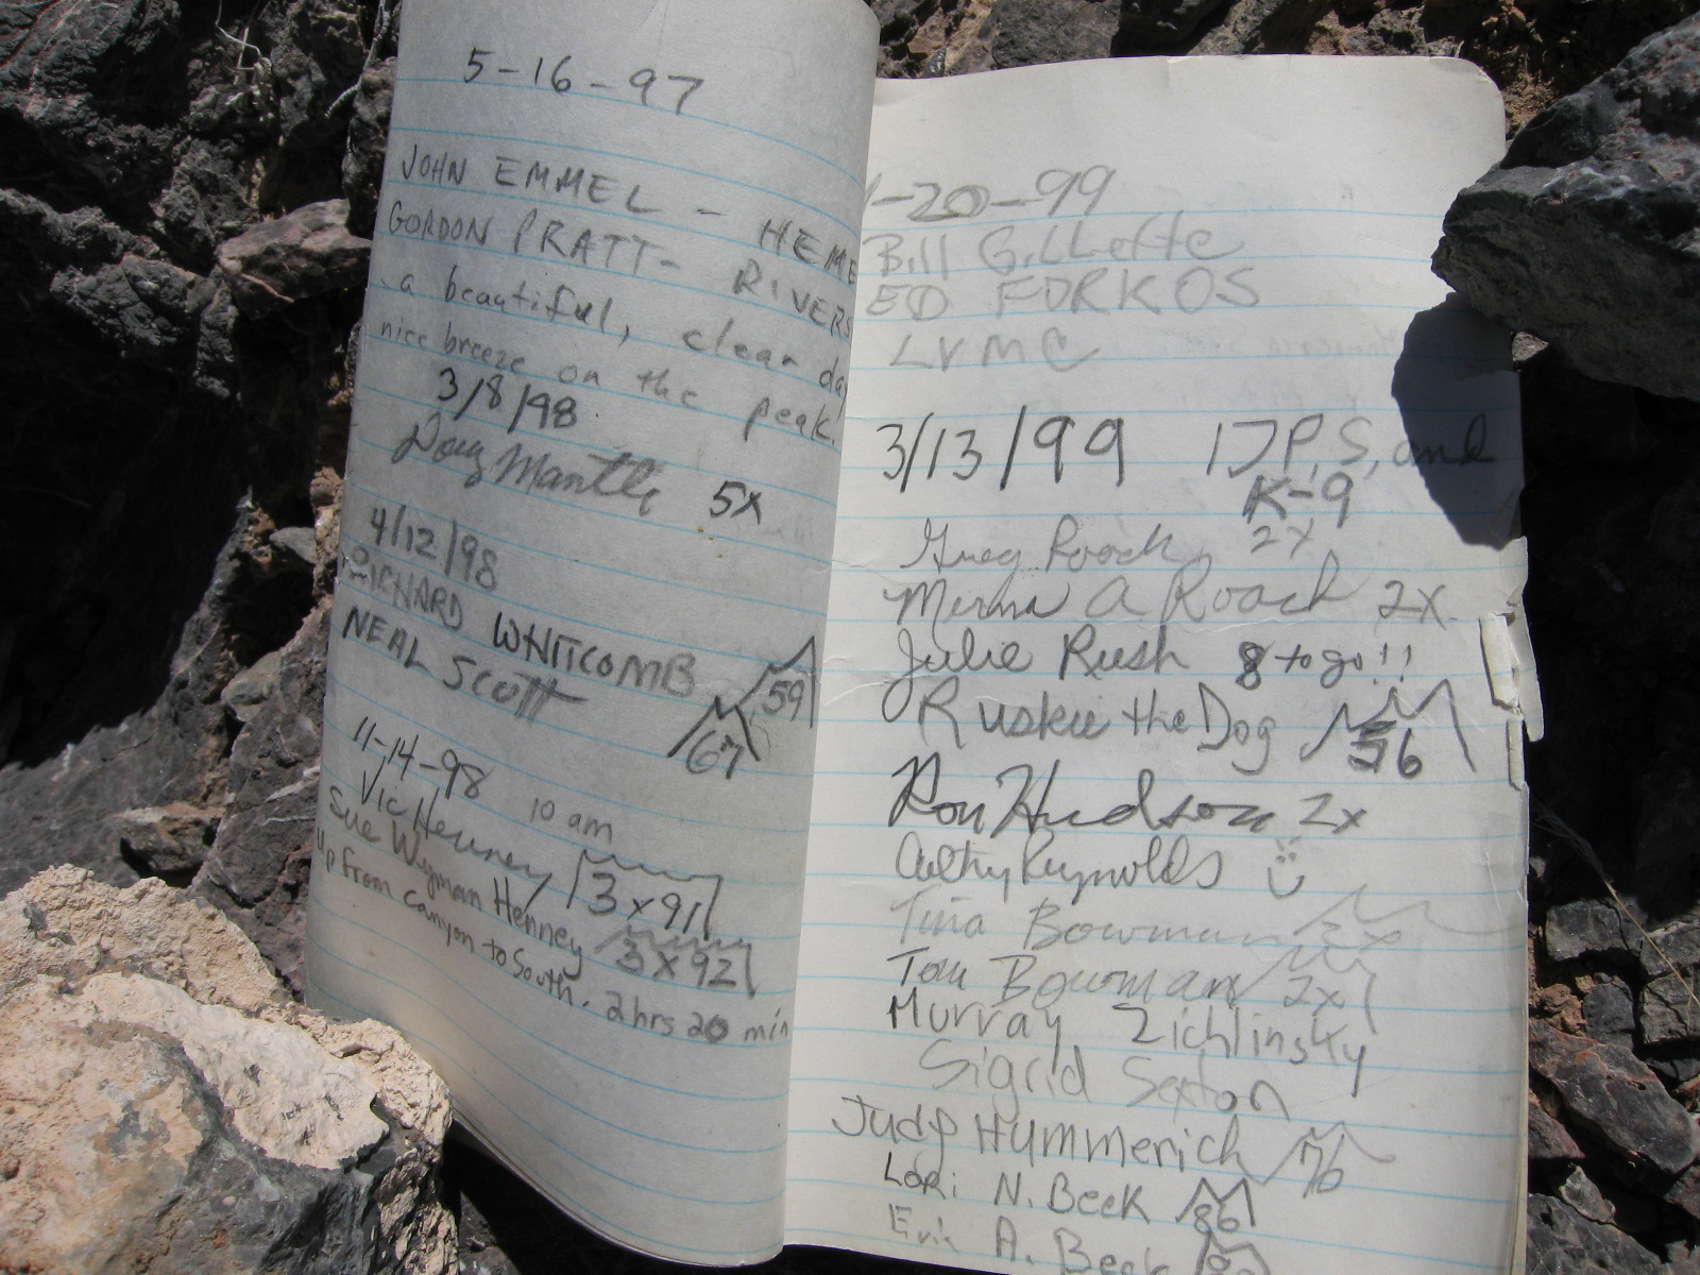 5-16-97
JOHN EMMEL - HEME
GORDON PRATT - RIVERS
a beautiful, clear day
nice breeze on the peak.
3/8/98
Doug Mantle 5x
4/12/98
RICHARD WHITCOMB 59
NEAL SCOTT 67
11-14-98 10 am
Vic Henney 3x91
Sue Wyman Henney 3x92
Up from canyon to South. 2hrs 20 min
-20-99
Bill GiLLette
ED FORKOS
LVMC
3/13/99 DPS, and
K-9
Greg Roach 2x
Mirna A Roach 2x
Julie Rush 8 to go!!
Ruskie the Dog 56
Ron Hudson 2x
Cathy Reynolds
Tina Bowman 2x
Tom Bowman 2x
Murray Zichlinsky
Sigrid Sexton
Judy Hummerich 76
Lori N. Beck 86
Eric A. Beck